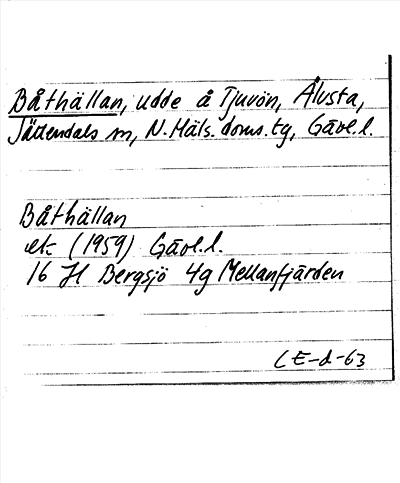 Båthällan, udde å Tjuvön, Ålvsta,
Jättendals sn, N. Häls. doms. tg, Gävl. l.
Båthällan
ek (1959) Gävl. l.
16 H Bergsjö 4g Mellanfjärden
CE-d-63